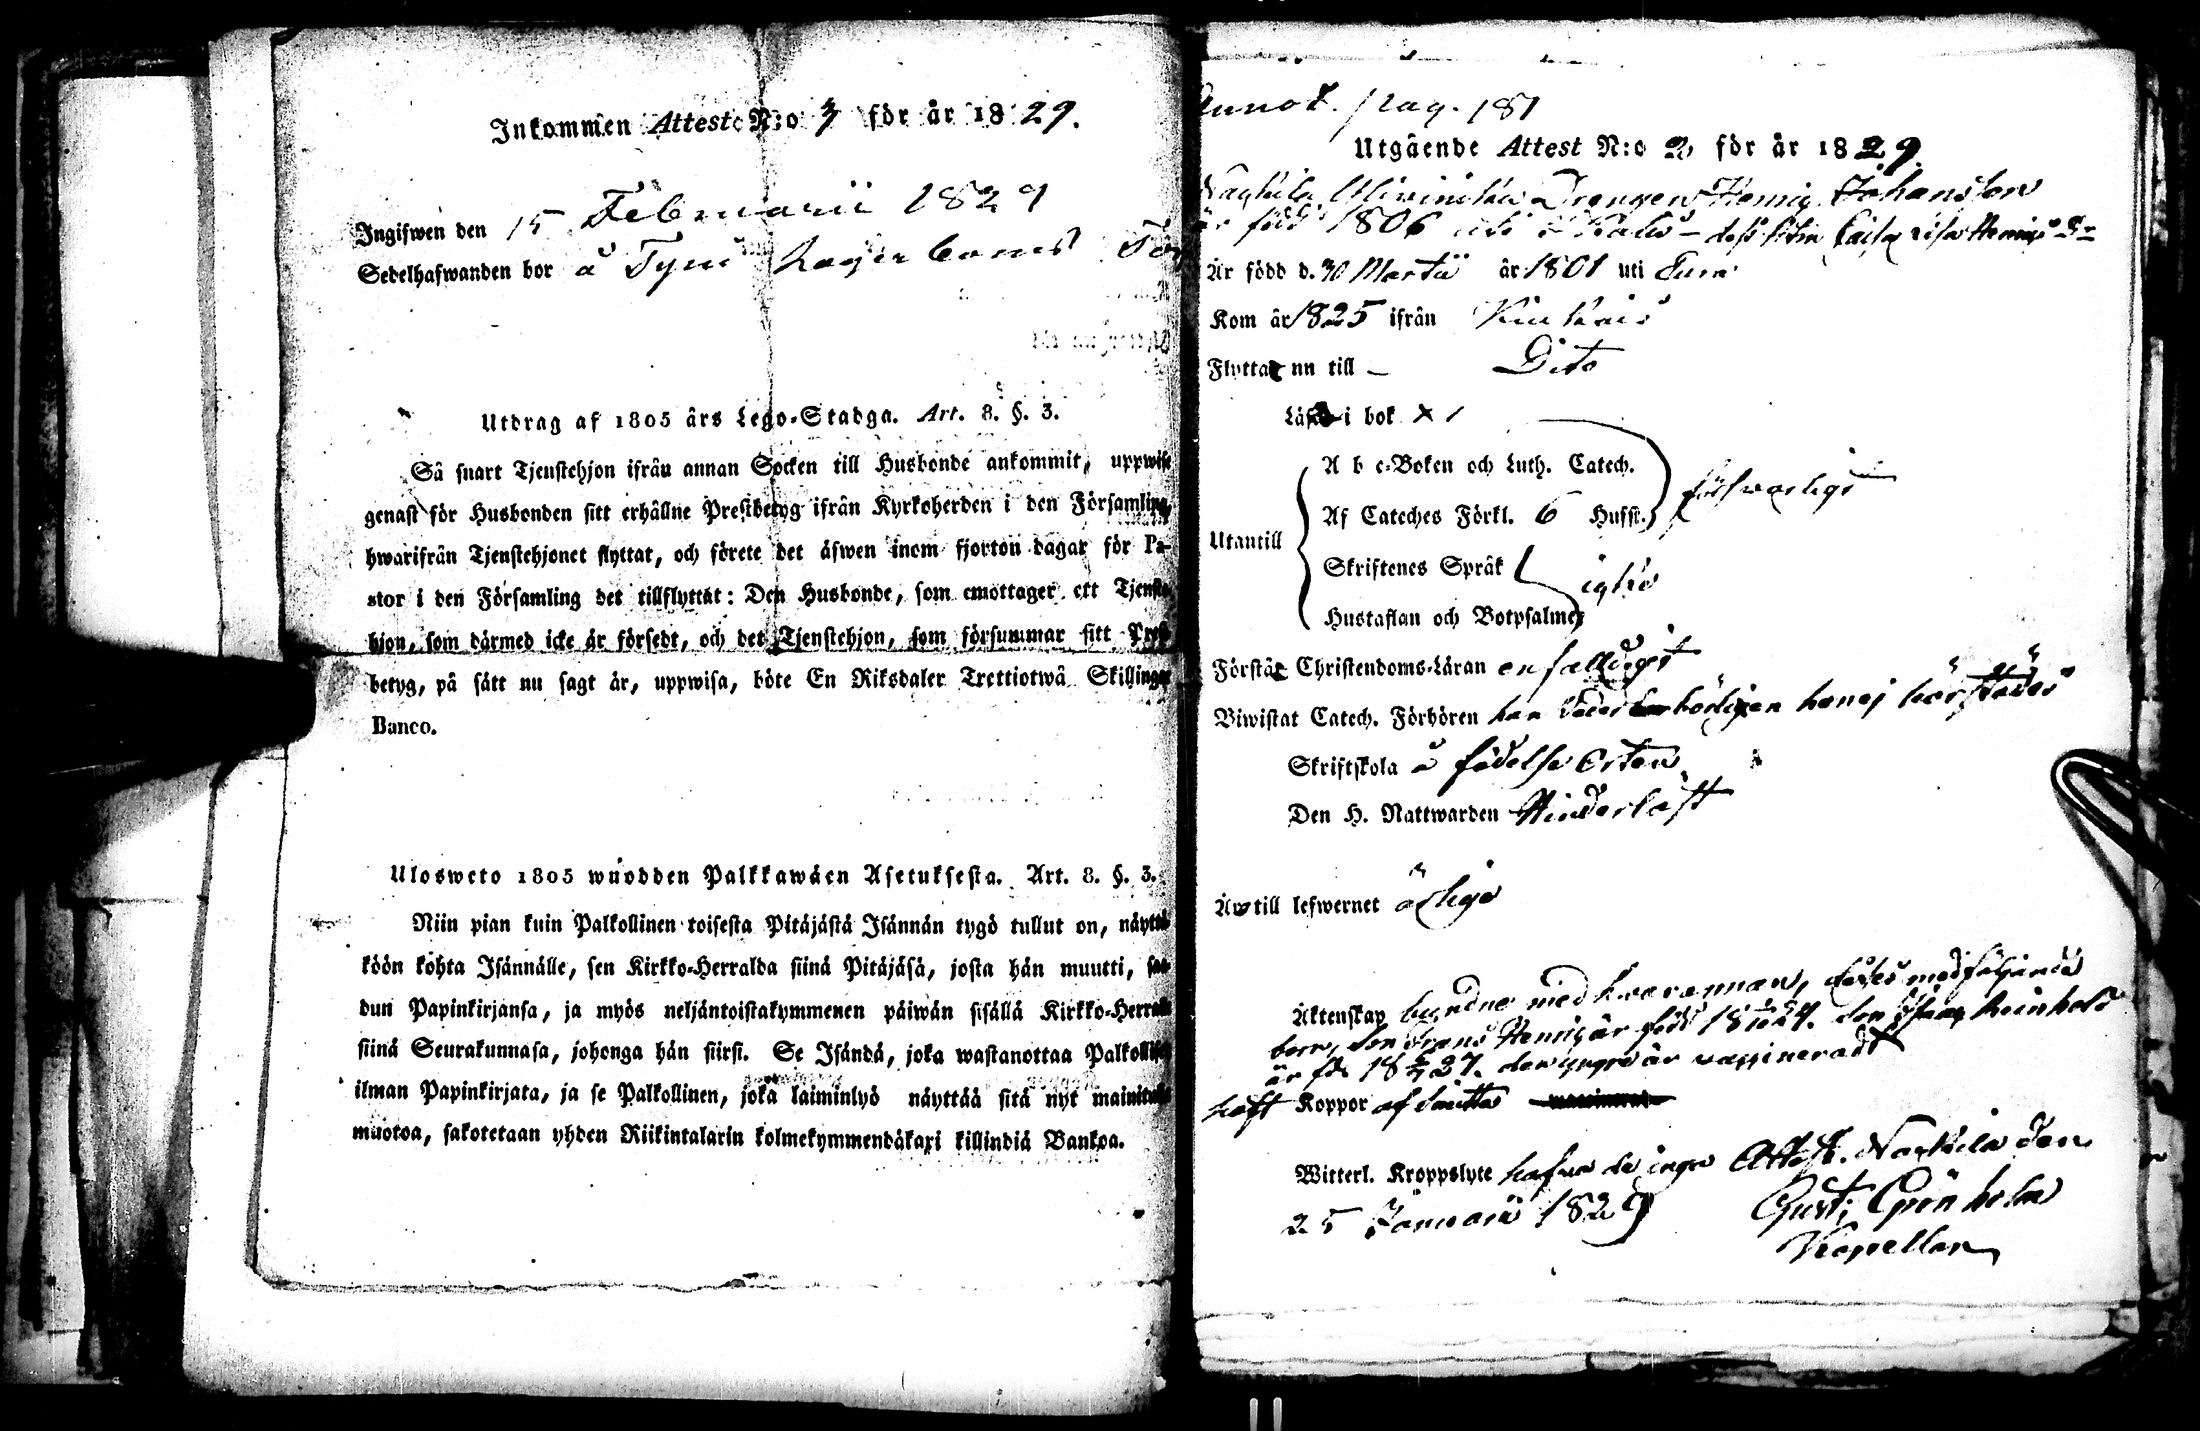 Inkommen Attest N:o 3 för år 1829.
Ingifwen den 15 Februarii 1829
Sedelhafwanden bor å
Utdrag af 1805 års Lego-Stadga. Art. 8. §. 3.
Så snart Tjenstehjon ifrån annan Socken till Husbonde ankommit, uppwise
genast för Husbonden sitt erhållne Prestbetyg ifrån Kyrkoherden i den Församling,
hwarifrån Tjenstehjonet flyttat, och förete det äfwen inom fjorton dagar för Pa-
stor i den Församling det tillflyttat: Den Husbonde, som emottager ett Tjenste-
hjon, som därmed icke är försedt, och det Tjenstehjon, som försummar sitt Prest-
betyg, på sätt nu sagt är, uppwisa, böte En Riksdaler Trettiotwå Skillingar
Banco.
Ulosweto 1805 wuodden Palkkawäen Asetuksesta. Art. 8. §. 3.
Niin pian kuin Palkollinen toisesta Pitäjästä Isännän tygö tullut on, näyttä-
köön kohta Isännälle, sen Kirkko-Herralda siinä Pitäjäsä, josta hän muutti, saa-
dun Papinkirjansa, ja myös neljäntoistakymmenen päiwän sisällä Kirkko-Herralle
siinä Seurakunnasa, johonga hän siirsi. Se Isändä, joka wastanottaa Palkollisen
ilman Papinkirjata, ja se Palkollinen, joka laiminlyö näyttää sitä nyt mainitulla
muotoa, sakotetaan yhden Riikintalarin kolmekymmendäkaxi killindiä Bankoa.
Annot. pag. 187
Utgående Attest N:o 2 för år 1829
Drengen Henrig Johansson
är född 1806 uti
Är född d. 30 Martii år 1801 uti Eura
Kom år 1825 ifrån
Flyttar nu till – Dito
Läser i bok x 1
A b c-Boken och Luth. Catech.
Af Cateches Förkl. 6 Husst. försvarligt
Utantill
Skriftenes Språk
Hustaflan och Botpsalmer
Förstår Christendoms-Läran enfalldeligt
Biwistat Catech. Förhören
Skriftskola å födelse Orten
Den H. Nattwarden Hinderlöst
Är till lefwernet ärlige
Äktenskap bundne med hvarannan,
barn, son Frans Henrig är född
är föd den yngre är vaccinerad
haft Koppor
Witterl. Kroppslyte hafva de inga Attest. Nakkila den
25 Januarii 1829 Gust. Grönholm
Kapellan